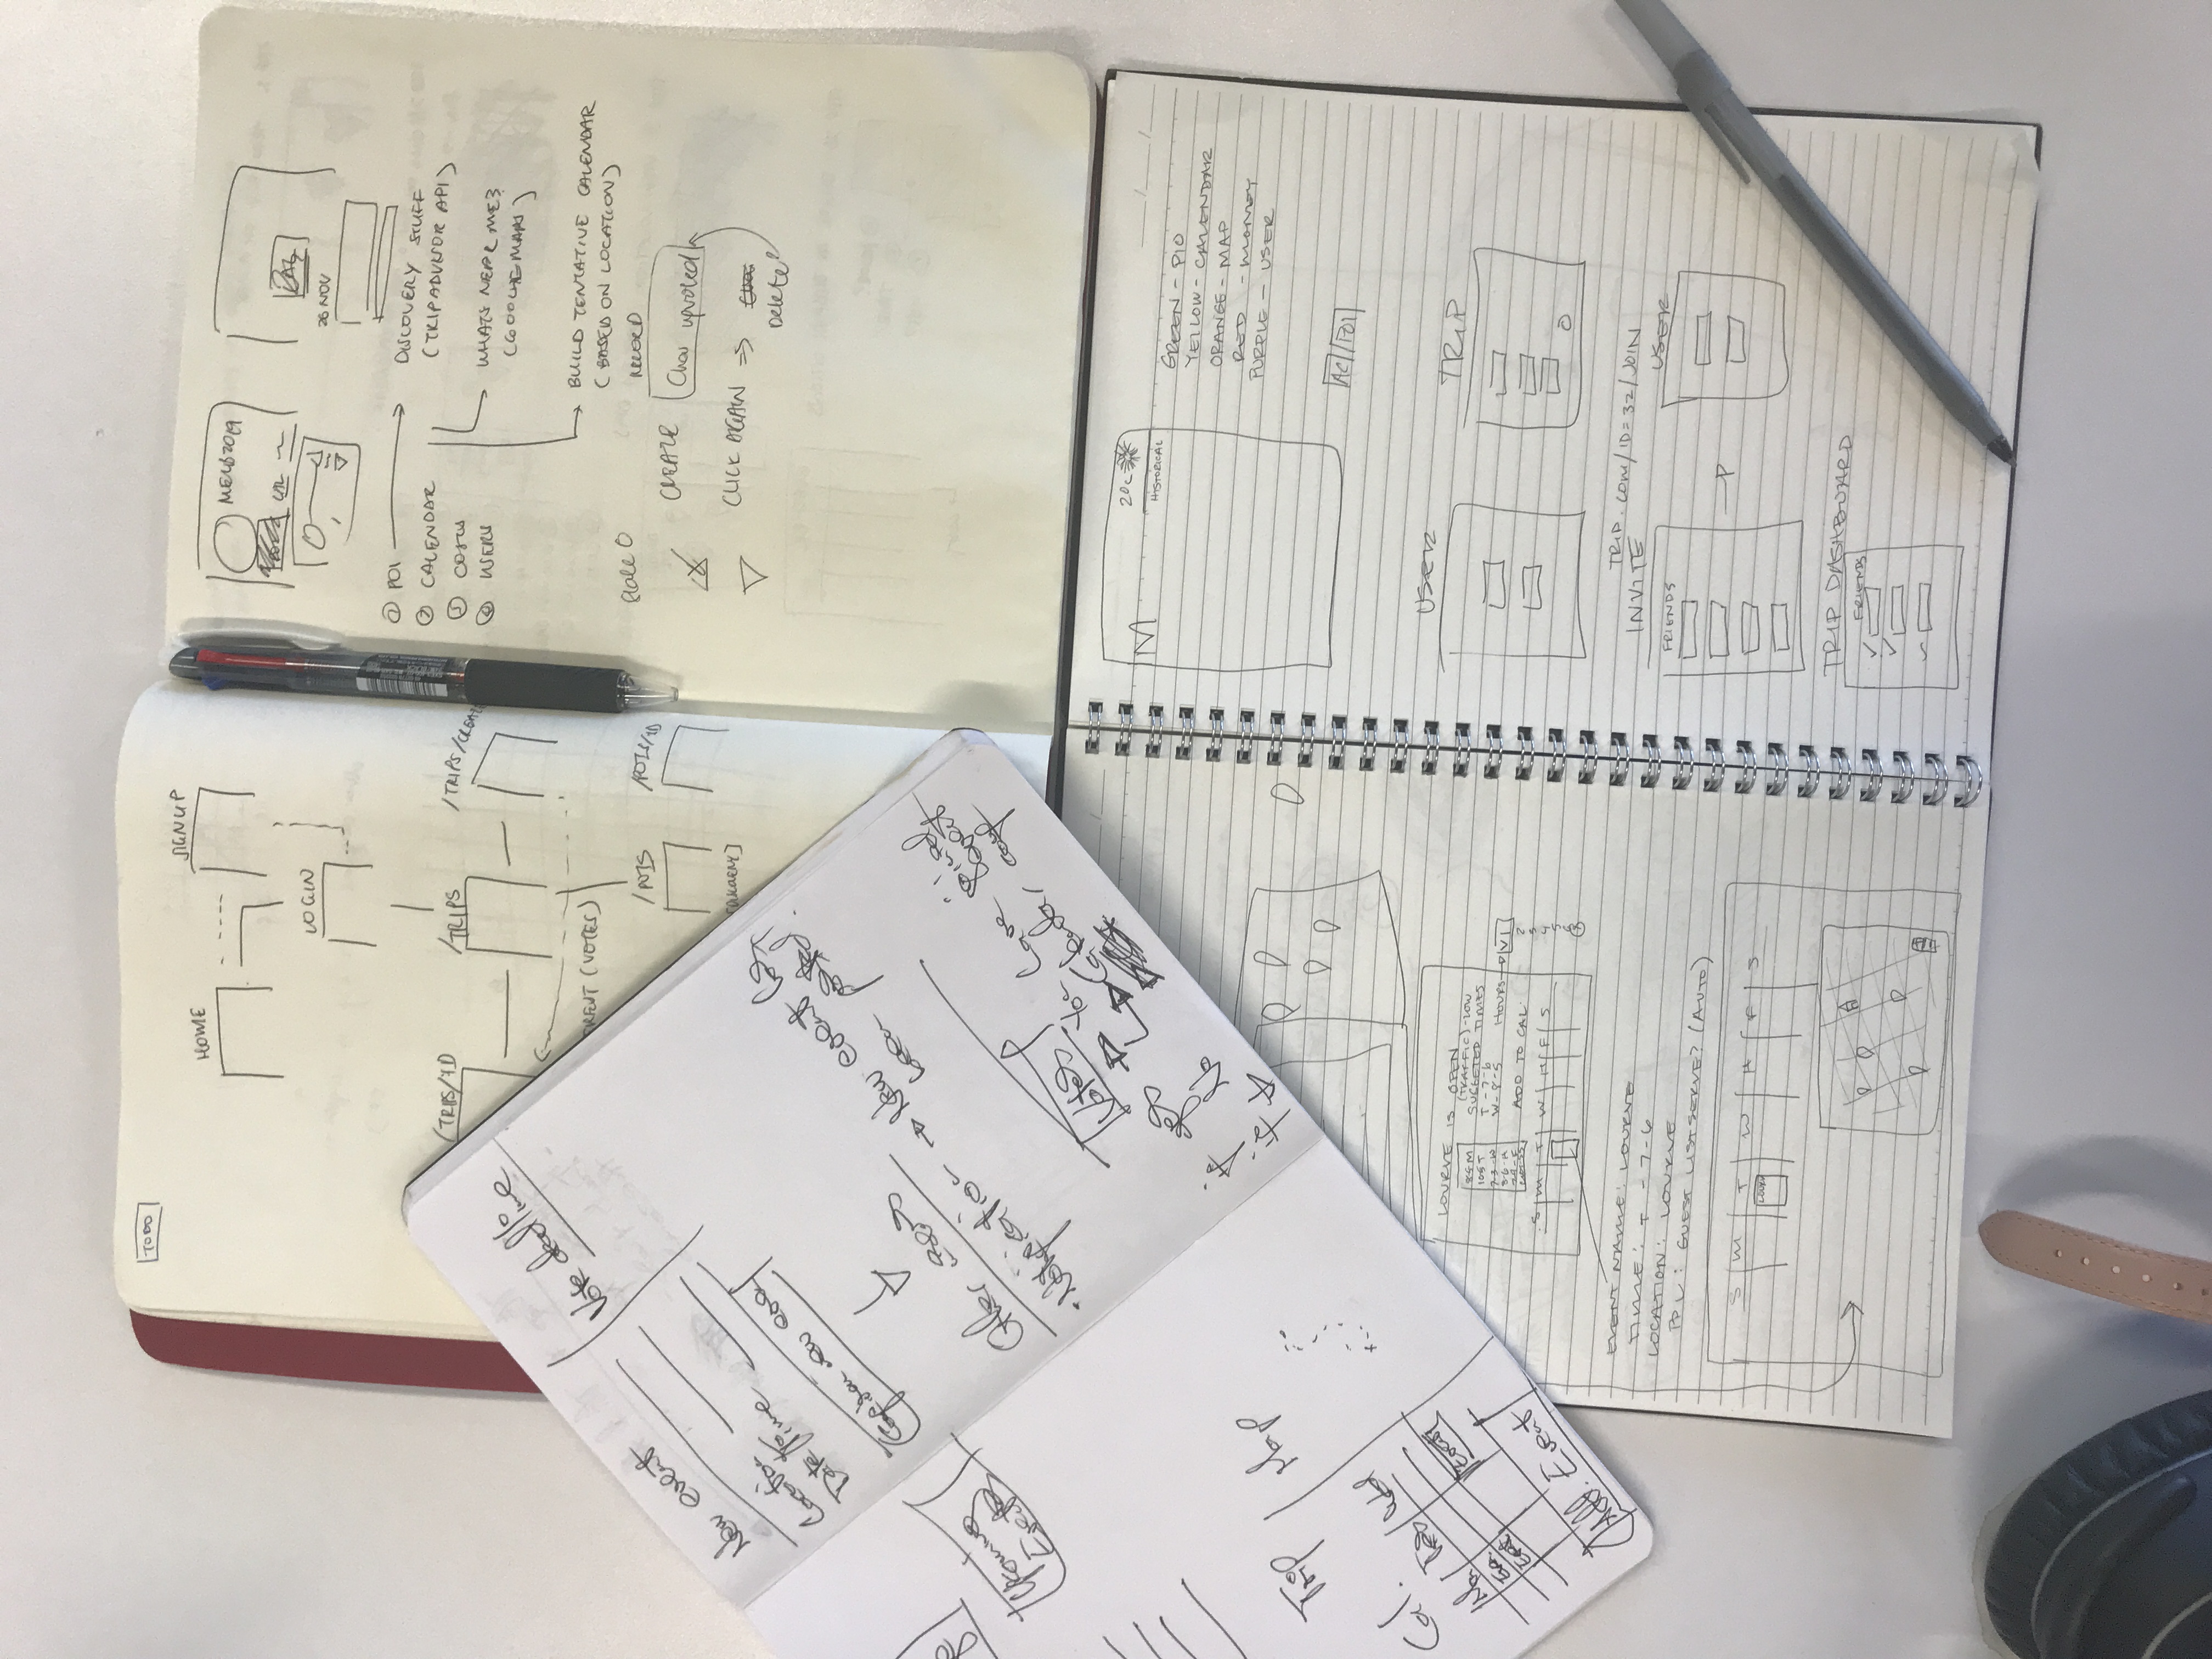 TODO
HOME
SIGNUP
LOGIN
/TRIPS/ID
/TRIPS
/TRIPS/CREATE
(VOTES)
/POIS
/POIS/ID
MELB2019
CAL
26 NOV
① POI
② CALENDAR
③ COSTS
④ USERS
DISCOVERY STUFF
(TRIPADVISOR API)
WHATS NEAR ME?
(GOOGLE MAPS)
BUILD TENTATIVE CALENDAR
(BASED ON LOCATION)
State 0
RECORD
CREATE
Chou upvoted
CLICK AGAIN ⇒
Delete
New event
Vote deadline
Location
Date/Time
new event
Other users
Notification → New event has
been posted!
Votes
if yes
You have joined
Calendar, event
if No
Upcoming
Events
Trip
Map
Cal.
Event
Add. Event
LOURVE IS OPEN
(TRAFFIC)-LOW
SUGGETED TIMES
T - 7-6
W - 8-5
HOURS
ADD TO CAL
S M T W H F S
EVENT NAME: LOURVE
TIME: T - 7-6
LOCATION: LOURVE
PPL: GUEST LISTSERVE? (AUTO)
S M T W H F S
M
20c
HISTORICAL
GREEN - PIO
YELLOW - CALENDAR
ORANGE - MAP
RED - MONEY
PURPLE - USER
USER
TRIP
TRIP.COM/ID=32/JOIN
INVITE
FRIENDS
USER
TRIP DASHBOARD
FRIENDS